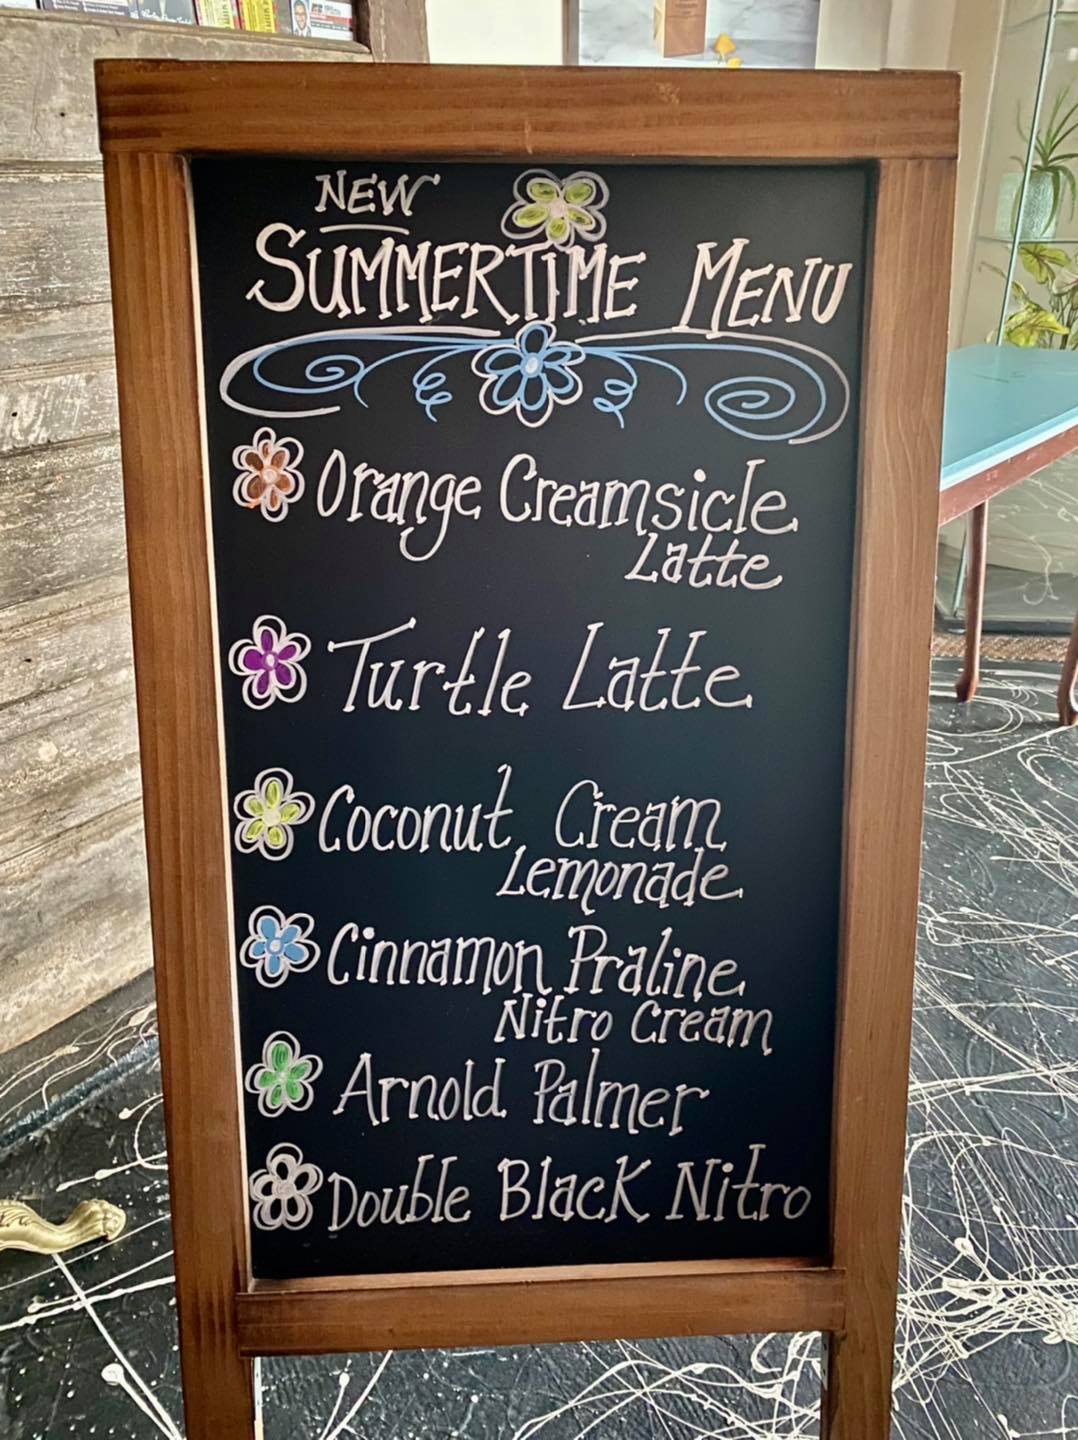 NEW
SUMMERTIME MENU
Orange Creamsicle
Latte
Turtle Latte
Coconut Cream
Lemonade
Cinnamon Praline
Nitro Cream
Arnold Palmer
Double Black Nitro